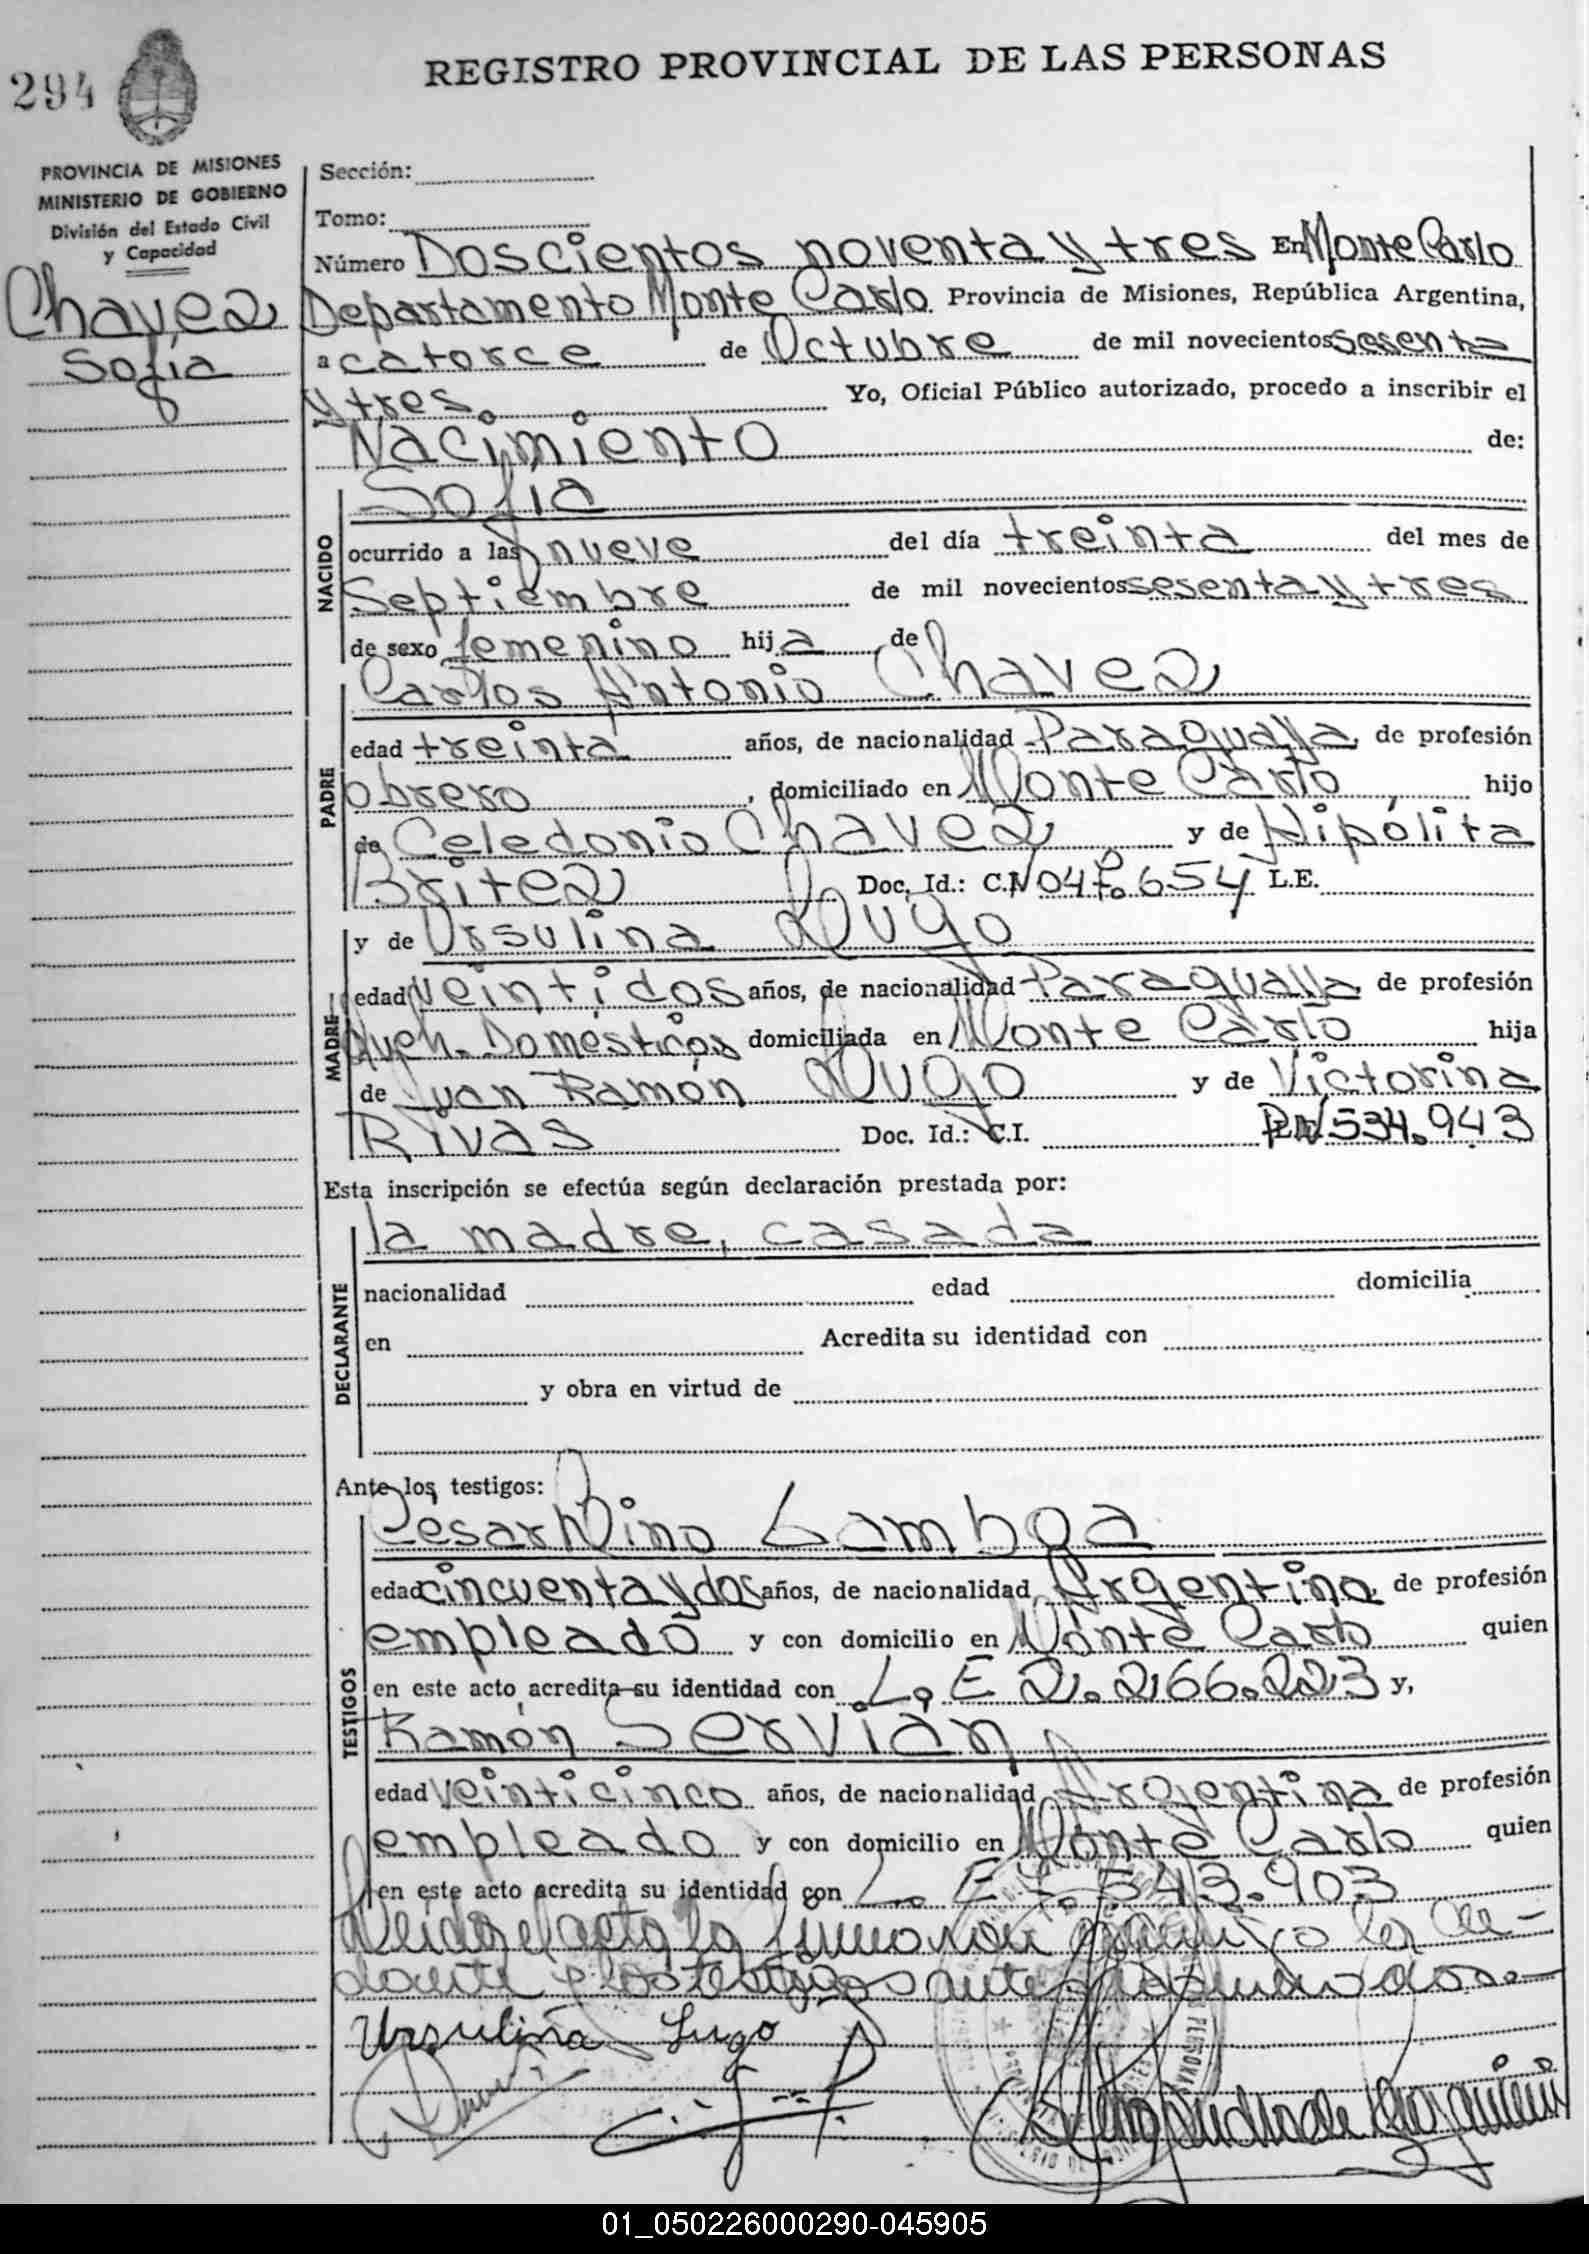 294
REGISTRO PROVINCIAL DE LAS PERSONAS
PROVINCIA DE MISIONES
MINISTERIO DE GOBIERNO
División del Estado Civil
y Capacidad
Chavez
Sofia
Sección:
Tomo:
Número Doscientos noventa y tres En Monte Carlo
Departamento Monte Carlo Provincia de Misiones, República Argentina,
a catorce de Octubre de mil novecientos sesenta
y tres. Yo, Oficial Público autorizado, procedo a inscribir el
Nacimiento de:
NACIDO
Sofia
ocurrido a las nueve del día treinta del mes de
Septiembre de mil novecientos sesenta y tres
de sexo femenino hij a de
PADRE
Carlos Antonio Chavez
edad treinta años, de nacionalidad Paraguaya, de profesión
obrero, domiciliado en Monte Carlo, hijo
de Celedonio Chavez y de Hipólita
Britez Doc. Id.: C. L.E.
MADRE
y de Ursulina Lugo
edad veintidos años, de nacionalidad Paraguaya de profesión
Domésticos domiciliada en Monte Carlo hija
de Juan Ramón Lugo y de Victorina
Rivas Doc. Id.: C.I. 534.943
Esta inscripción se efectúa según declaración prestada por:
DECLARANTE
la madre, casada
nacionalidad edad domicilia
en Acredita su identidad con
y obra en virtud de
Ante los testigos:
TESTIGOS
Lamboa
edad cincuenta y dos años, de nacionalidad Argentina, de profesión
empleado y con domicilio en Monte Carlo quien
en este acto acredita su identidad con L. E 2.266.223 y,
Ramón Servián
edad veinticinco años, de nacionalidad Argentina de profesión
empleado y con domicilio en Monte Carlo quien
en este acto acredita su identidad con L. E 7.543.903
Leida el acta la
y los testigos ante
Ursulina Lugo
01_050226000290-045905